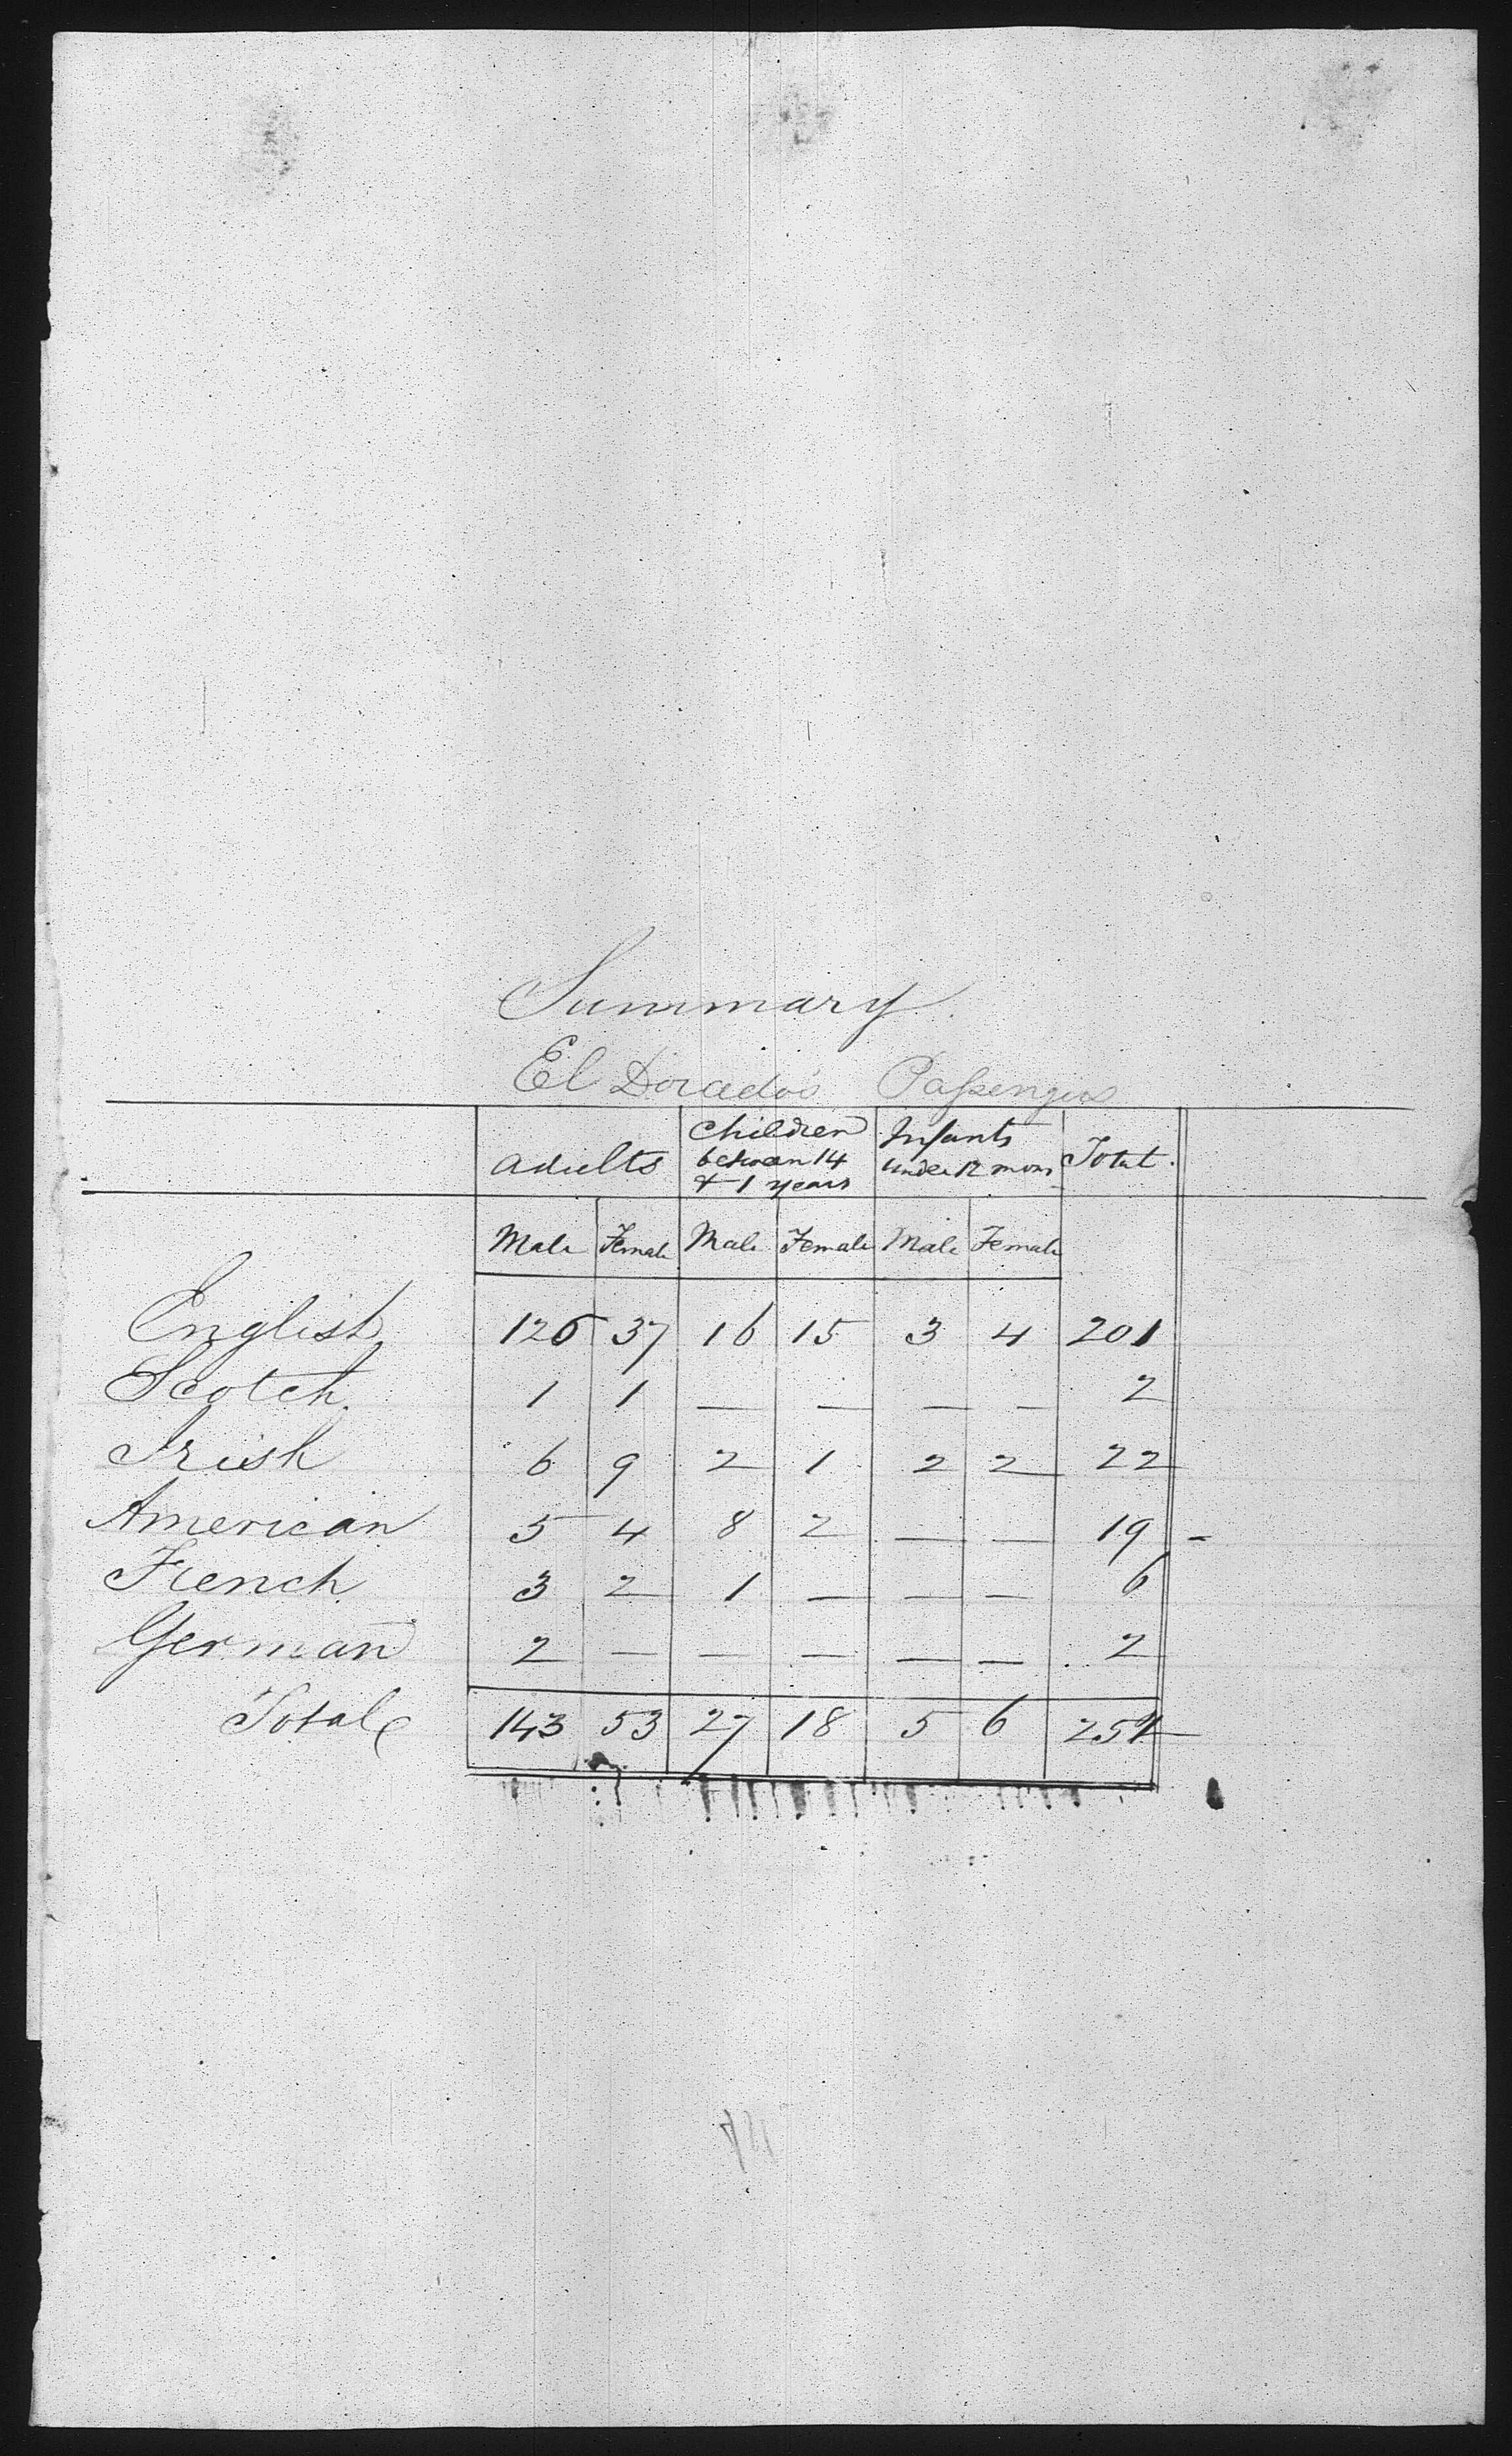 Summary.
El Dorado's Passengers
Adults Children between 14 & 1 years Infants under 12 mons Total.
Male Female Male Female Male Female
English 126 37 16 15 3 4 201
Scotch 1 1 — — — — 2
Irish 6 9 2 1 2 2 22
American 5 4 8 2 — — 19 -
French 3 2 1 — — — 6
German 2 — — — — — 2
Total 143 53 27 18 5 6